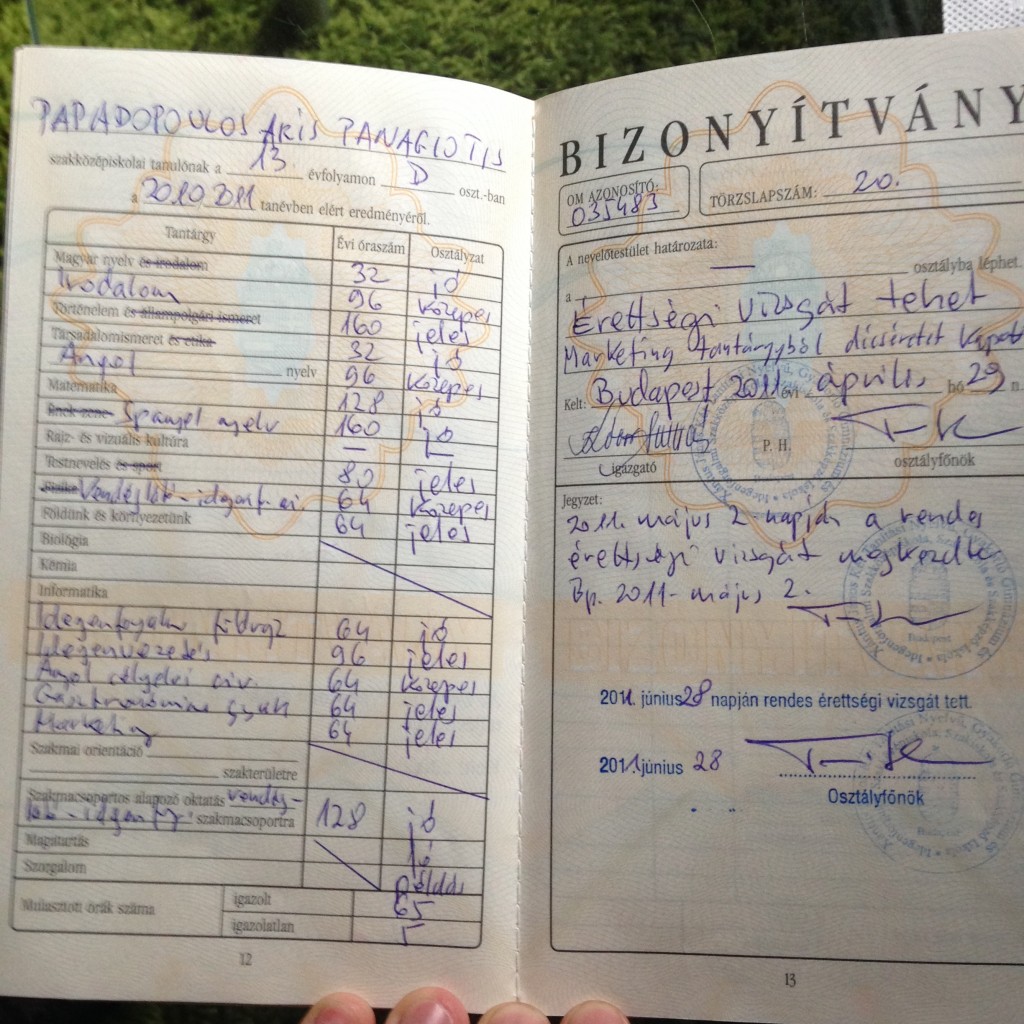 PAPADOPOULOS ARIS PANAGIOTIS
szakközépiskolai tanulónak a 13. évfolyamon D oszt.-ban
a 2010/2011 tanévben elért eredményéről.
Tantárgy Évi óraszám Osztályzat
Magyar nyelv és irodalom 32 jó
Irodalom 96 közepes
Történelem és állampolgári ismeret 160 jeles
Társadalomismeret és etika 32 jó
Angol nyelv 96 közepes
Matematika 128 jó
Ének-zene Spanyol nyelv 160 jó
Rajz- és vizuális kultúra —
Testnevelés és sport 80 jeles
Fizika Vendéglátó-idegenf. ei 64 közepes
Földünk és környezetünk 64 jeles
Biológia
Kémia
Informatika
Idegenforgalmi földrajz 64 jó
Idegenvezetés 96 jeles
Angol 64 közepes
Gasztronómia gyak 64 jeles
Marketing 64 jeles
Szakmai orientáció
szakterületre
Szakmacsoportos alapozó oktatás vendég-
látó-idegenf. szakmacsoportra 128 jó
Magatartás jó
Szorgalom példás
Mulasztott órák száma igazolt 65
igazolatlan 5
12
BIZONYÍTVÁNY
OM AZONOSÍTÓ: 035483
TÖRZSLAPSZÁM: 20.
A nevelőtestület határozata:
a — osztályba léphet.
Érettségi vizsgát tehet
Marketing tantárgyból dícséretet kapott
Kelt: Budapest 2011 évi április hó 29 n.
P. H.
igazgató osztályfőnök
Jegyzet:
2011. május 2. napján a rendes
érettségi vizsgát megkezdte
Bp. 2011. május 2.
2011. június 28 napján rendes érettségi vizsgát tett.
2011. június 28
Osztályfőnök
13